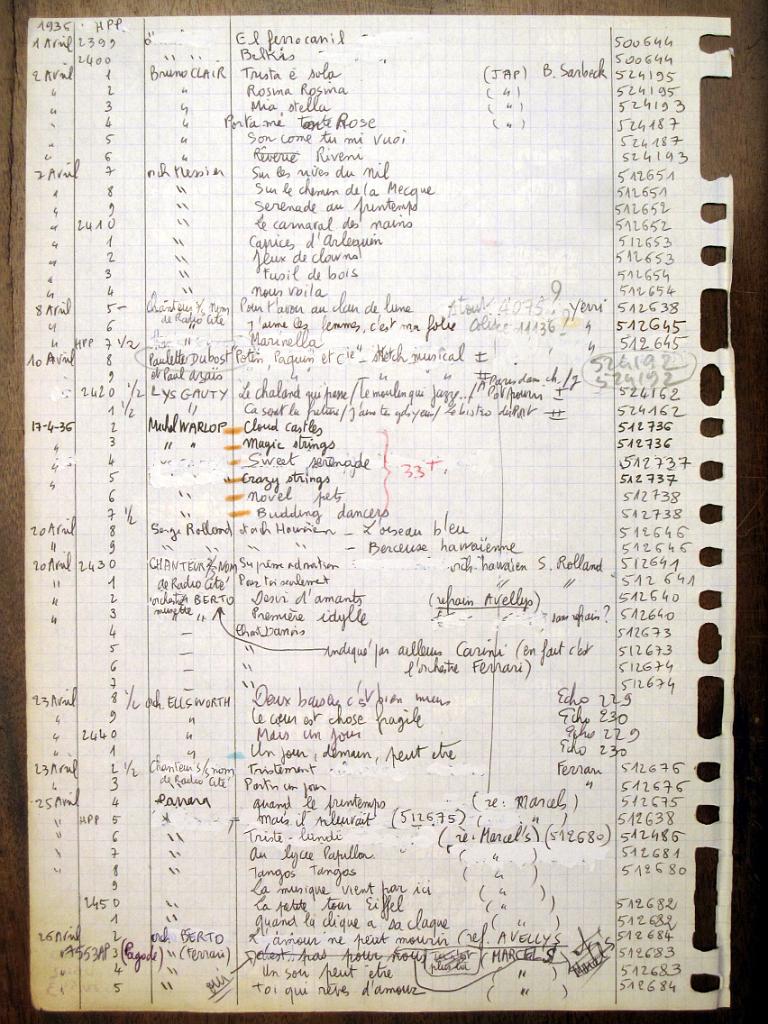 1936 HPP
1 Avril 2399 El ferrocarril - 500644
2400 Belkis - 500644
2 Avril 1 Bruno CLAIR Trista è sola (JAP) B. Sarbeck 524195
" 2 " Rosina Rosina ( " ) 524195
" 3 " Mia stella ( " ) 524193
" 4 " Porta me tante Rose ( " ) 524187
" 5 " Son come tu mi vuoi 524187
" 6 " Riveni 524193
7 Avril 7 orch Messier Sur les rives du Nil 512651
" 8 " Sur le chemin de la Mecque 512651
" 9 " Serenade au printemps 512652
" 2410 " Le carnaval des nains 512652
" 1 " Caprices d'Arlequin 512653
" 2 " Jeux de clowns 512653
" 3 " Fusil de bois 512654
" 4 " nous voila 512654
8 Avril 5 - Chanteur s/s nom de Radio Cité Pour t'avoir au clair de lune Yerri 512638
" 6 " J'aime les femmes, c'est ma folie " 512645
" HPP 7 1/2 " Marinella " 512645
10 Avril 8 Paulette Dubost "Potin, Paquin et Cie" - sketch musical I 524192
" 9 et Paul Azaïs " II 524192
" 2420 1/2 LYS GAUTY Le chaland qui passe / Le moulin qui jazze.. / Pot pourri I 524162
1 1/2 " Ca sent la friture / J'aime tes gds yeux / Le bistro du Port II 524162
17-4-36 2 Michel WARLOP Cloud castles 512736
" 3 " " Magic strings 512736
" 4 Sweet serenade 33t. 512737
" 5 " Crazy strings 512737
6 " Novel pets 512738
7 1/2 " Budding dancers 512738
20 Avril 8 Serge Rolland et orch Hawaien - L'oiseau bleu 512646
" 9 " " " - Berceuse hawaïenne 512646
20 Avril 2430 CHANTEUR S/S NOM de Radio Cité Suprème admation orch. hawaïen S. Rolland 512641
" 1 Pour toi seulement " " 512641
" 2 orchestre BERTO musette Desir d'amants (refrain AVELLYS) 512640
" 3 " " Première idylle sans refrain? 512640
4 - 512673
5 - " indiqué par ailleurs Carini (en fait c'est 512673
6 - " l'orchestre Ferrari) 512674
7 " 512674
23 Avril 8 1/2 orch. ELLSWORTH Deux baisers c'est bien mieux Echo 229
" 9 " Le cœur est chose fragile Echo 230
" 2440 " Mais un jour Echo 229
" 1 " Un jour, demain, peut etre Echo 230
23 Avril 2 1/2 Chanteur s/s nom de Radio Cité Tristement Ferrari 512676
" 3 Partir un jour " 512676
25 Avril 4 Carrara quand le printemps (re: Marcel's) 512675
" HPP 5 " mais il pleurait (512675) 512638
" 6 " Triste-lundi (re: Marcel's) (512680) 512486
" 7 " Au lycee Papillon ( " ) 512681
" 8 " Tangos Tangos ( " ) 512680
9 La musique vient par ici ( " )
2450 " La petite tour Eiffel ( " ) 512682
1 " quand la clique a sa claque ( " ) 512682
26 Avril 2 orch BERTO L'amour ne peut mourir (ref. AVELLYS 512684
3 (Pagode) " (Ferrari) c'est pas pour nous MARCEL'S 512683
4 " Un soir peut etre ( " ) 512683
5 " Toi qui rêves d'amour ( " ) 512684